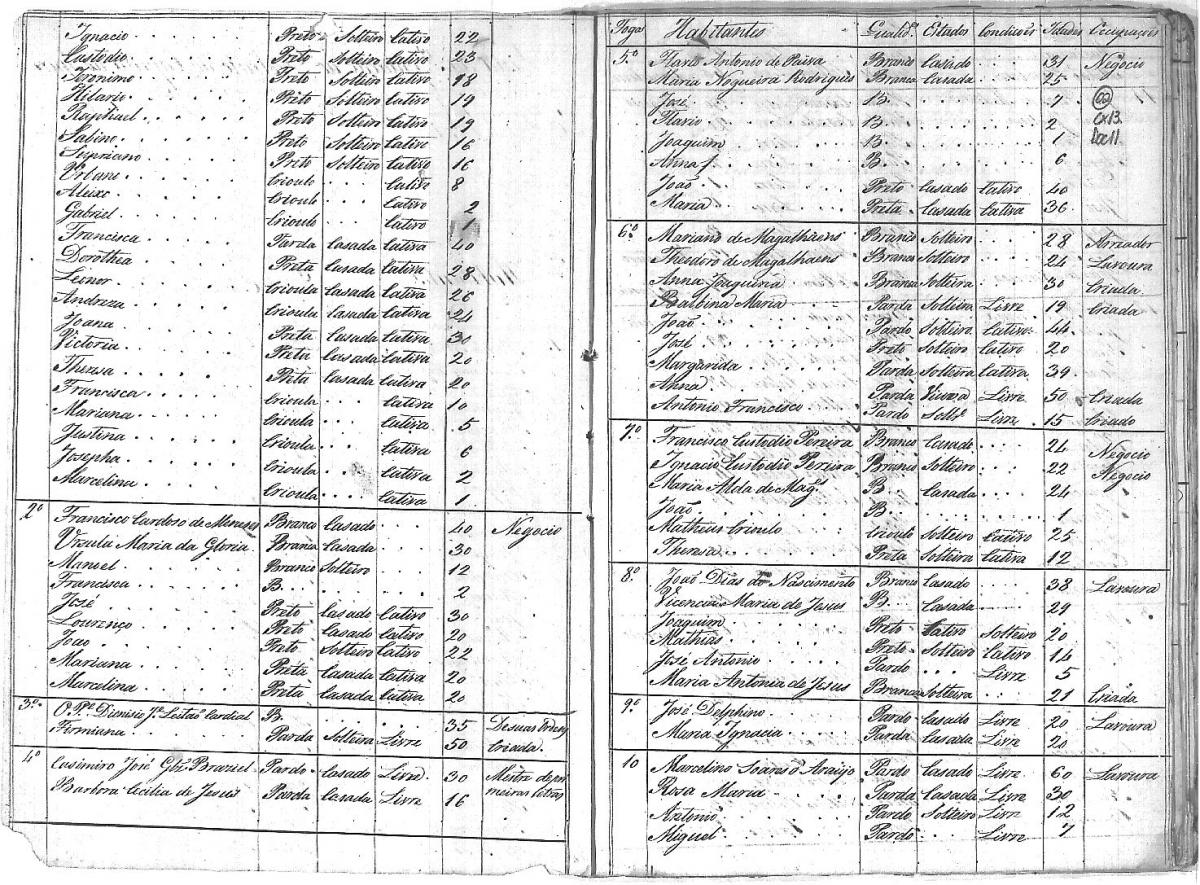 Ignacio Preto Solteiro Cativo 22
Custodio Preto Solteiro Cativo 23
Jeronimo Preto Solteiro Cativo 18
Hilario Preto Solteiro Cativo 19
Raphael Preto Solteiro Cativo 19
Sabino Preto Solteiro Cativo 16
Sypriano Preto Solteiro Cativo 16
Urbano Crioulo Cativo 8
Aleixo Crioulo Cativo 2
Gabriel Crioulo Cativo 1
Francisca Parda Casada Cativa 40
Dorothea Preta Casada Cativa 28
Leinor Crioula Casada Cativa 26
Andreza Crioula Casada Cativa 24
Joana Preta Casada Cativa 30
Victoria Preta Casada Cativa 20
Theresa Preta Casada Cativa 20
Francisca Crioula Cativa 10
Mariana Crioula Cativa 5
Justina Crioula Cativa 6
Josepha Crioula Cativa 2
Marcelina Crioula Cativa 1
2º Francisco Cardoso de Menezes Branco Casado 40 Negocio
Urzula Maria da Gloria Branca Casada 30
Manoel Branco Solteiro 12
Francisca B. 2
José Preto Casado Cativo 30
Lourenço Preto Casado Cativo 20
Joao Preto Solteiro Cativo 22
Mariana Preta Casada Cativa 20
Marcelina Preta Casada Cativa 20
3º Dionisio Leitaõ Cardial B. 35 De suas
Firmiana Parda Solteira Livre 50 Criada
4º Casimiro José Glz Braziel Pardo Casado Livre 30 Mestre de pri
Barbora Cecilia de Jesus Parda Casada Livre 16 meiras letras
Fogos Habitantes Qualid.º Estados Condicois Idades Occupaçois
5º Flavio Antonio de Paiva Branco Casado 31 Negocio
Maria Nogueira Rodrigues Branca Casada 25
José B. 7
Flavio B. 2
Joaquim B. 1
Anna B. 6
João Preto Casado Cativo 40
Maria Preta Casada Cativa 36
02
Cx13
Doc11
6º Mariano de Magalhaens Branco Solteiro 28 Arreador
Theodoro de Magalhaens Branco Solteiro 24 Lavoura
Anna Joaquina Branca Solteira 30 Criada
Balbina Maria Parda Solteira Livre 19 Criada
João Pardo Solteiro Cativo 44
José Preto Solteiro Cativo 20
Margarida Parda Solteira Cativa 39
Anna Parda Viuva Livre 50 Criada
Antonio Francisco Pardo Soltº Livre 15 Criado
7º Francisco Custodio Pereira Branco Casado 24 Negocio
Ignacio Custodio Pereira Branco Solteiro 22 Negocio
Maria Alda de Magˢ B. Casada 24
João B. 1
Matheus Crioulo Crioulo Solteiro Cativo 25
Theresa Preta Solteira Cativa 12
8º João Dias do Nascimento Branco Casado 38 Lavoura
Vicencia Maria de Jesus B. Casada 29
Joaquim Preto Cativo Solteiro 20
Mathias Preto Solteiro Cativo 14
José Antonio Pardo Livre 5
Maria Antonia de Jesus Branca Solteira 21 Criada
9º José Delphino Pardo Casado Livre 20 Lavoura
Maria Ignacia Parda Casada Livre 20
10 Marcelino Soares Araujo Pardo Casado Livre 60 Lavoura
Rosa Maria Parda Casada Livre 30
Antonio Pardo Solteiro Livre 12
Miguel Pardo Livre 7